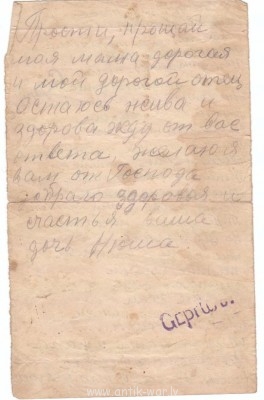 Прости, прощай
мая мама дорогая
и мой дорогой отец
Остаюсь жива и
здорова жду от вас
ответа желаю я
вам от Господа
добрала здоровья и
счастья ваша
дочь Нюша
www.antik-war.lv